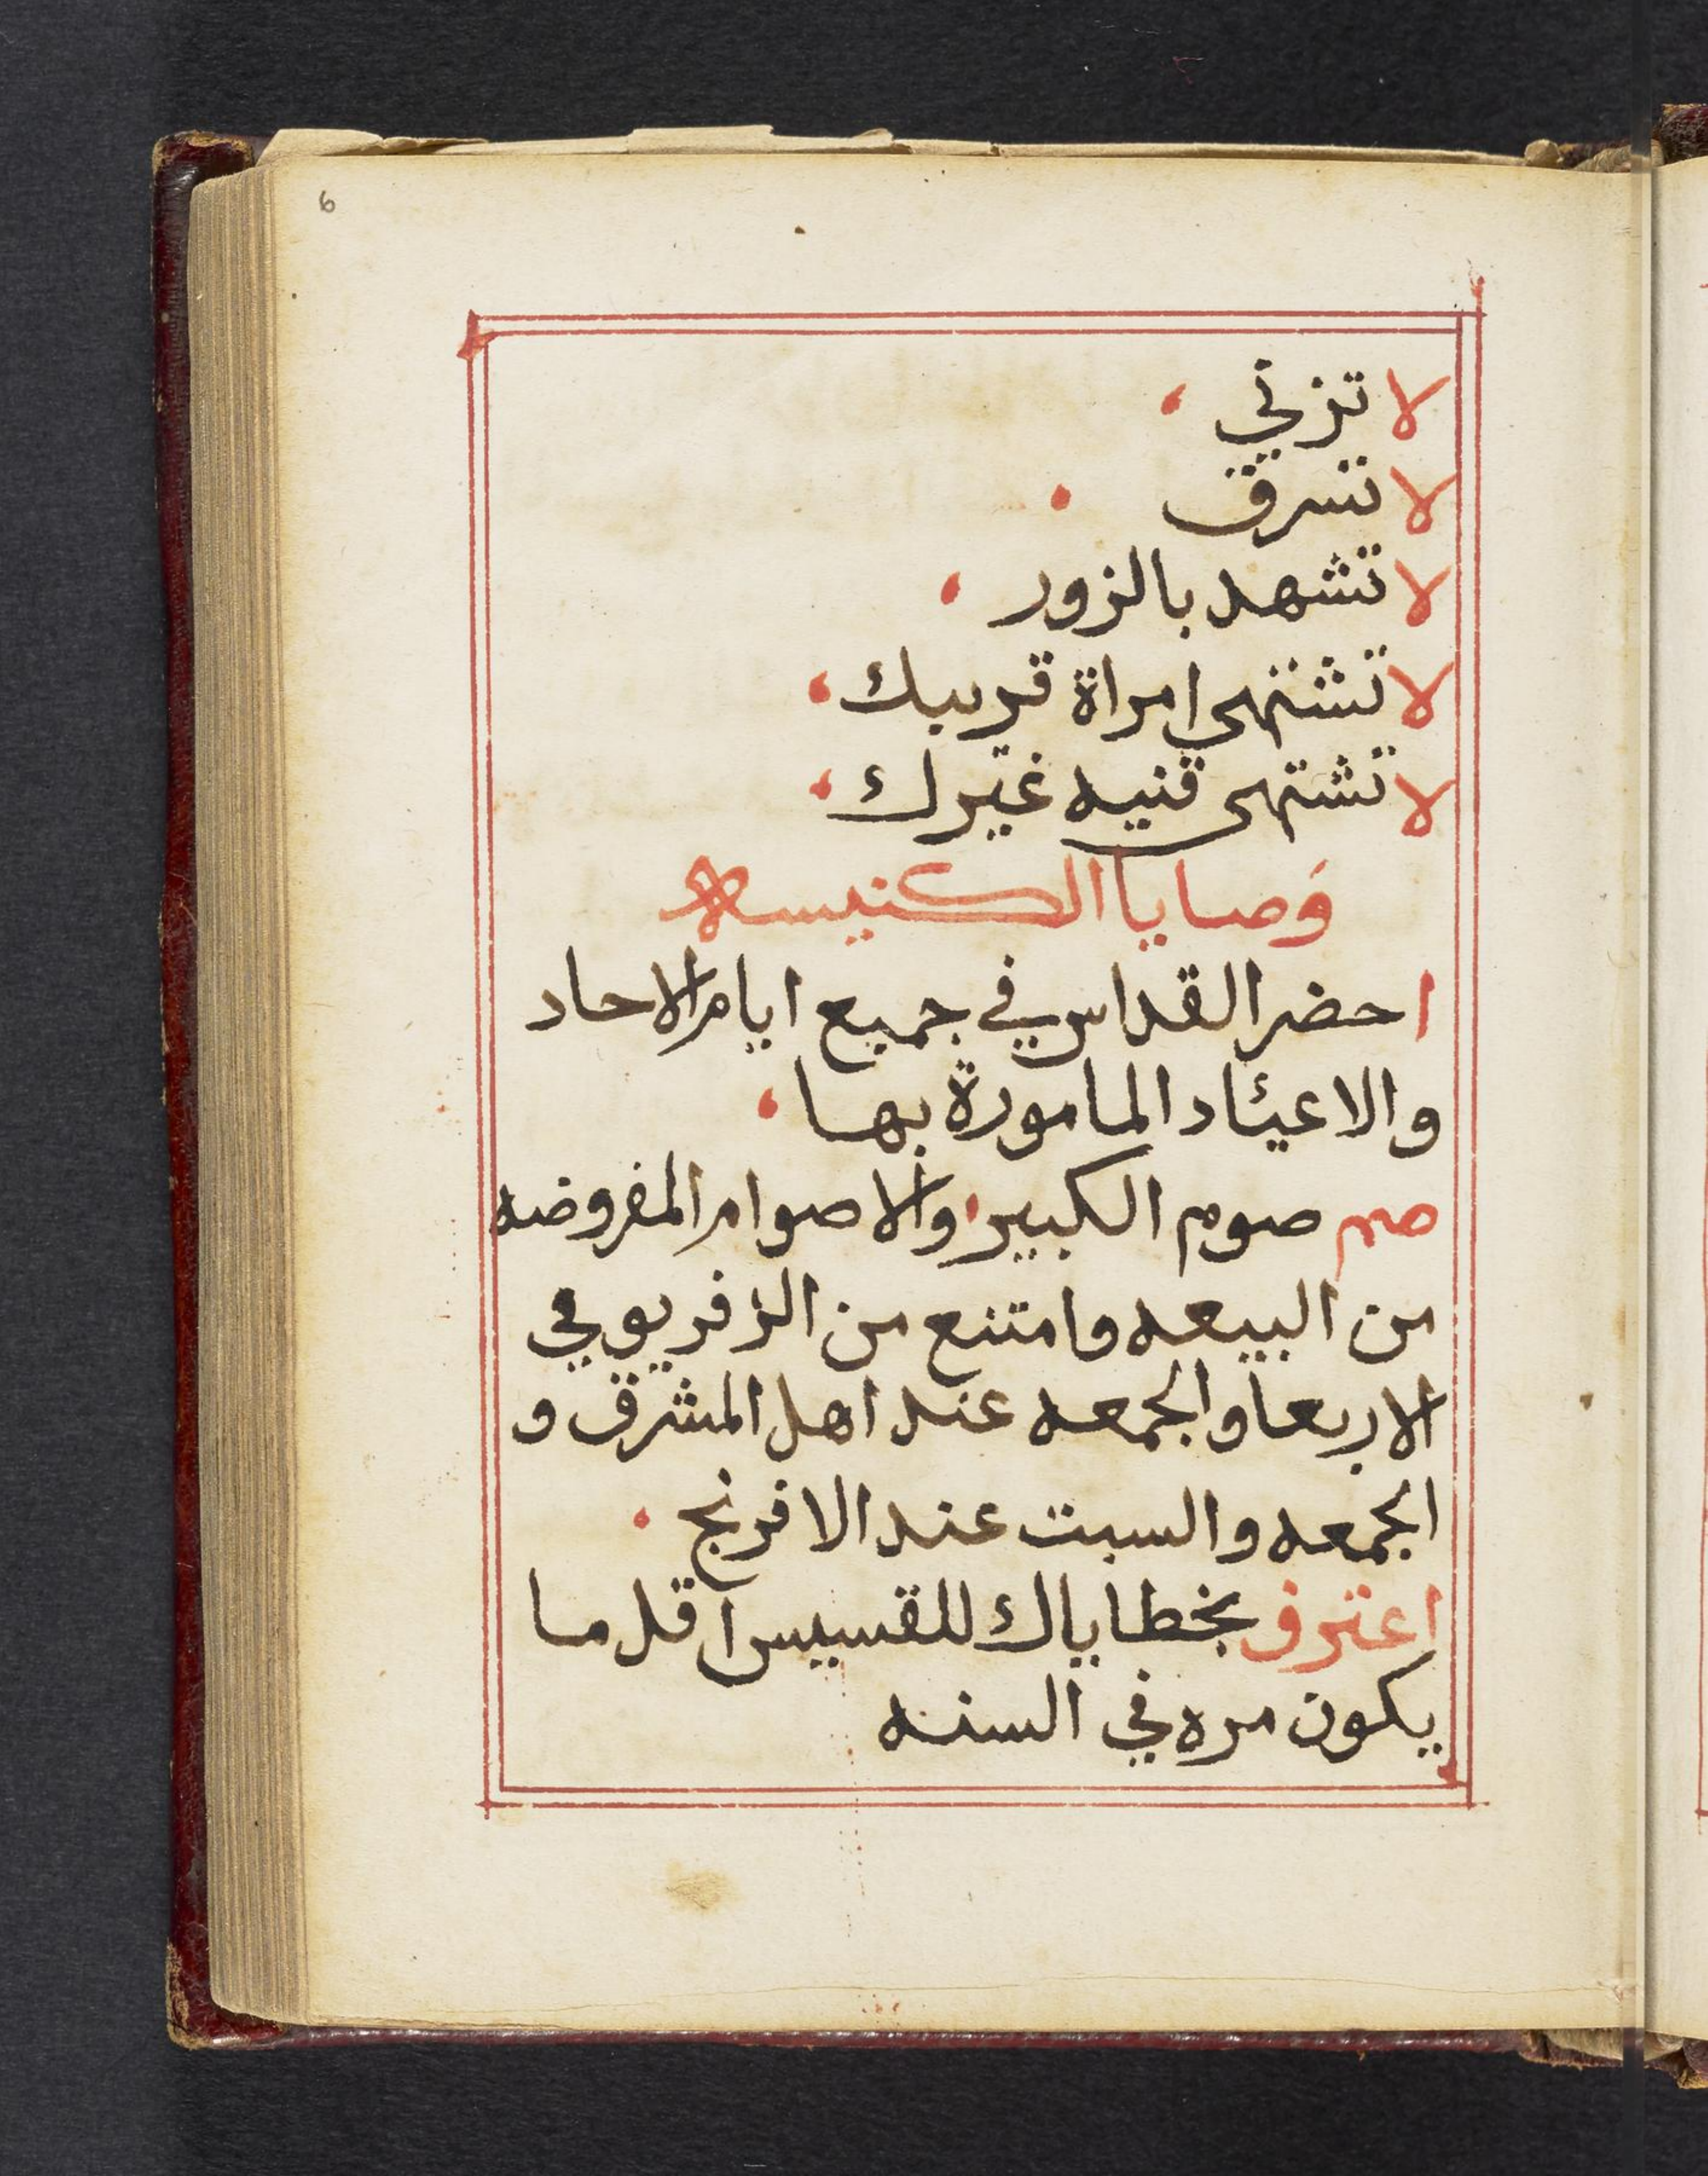 6
لا تزني
لا تسرق
لا تشهد بالزور
لا تشتهي امراة قريبك
لا تشتهى قنيه غيرك
وصايا الكنيسه
احضر القداس في جميع ايام الاحاد
والاعياد المامورة بها
صم صوم الكبير والاصوام المفروضه
من البيعه وامتنع من الزفر يومي
الاربعا والجمعه عند اهل المشرق و
الجمعه والسبت عند الافرنج
اعترف بخطاياك للقسيس اقل ما
يكون مره في السنه